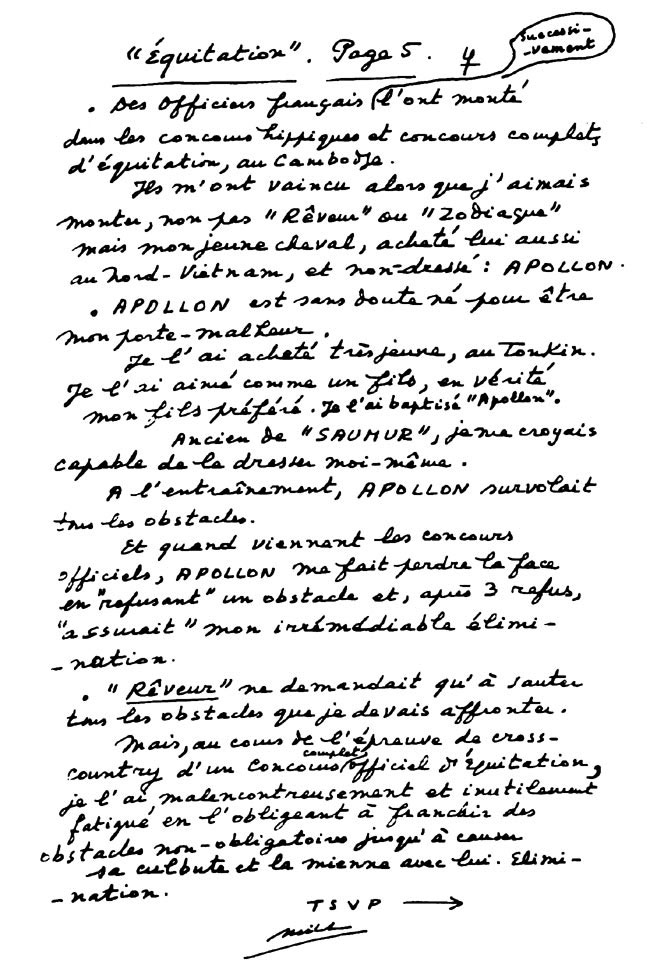 "Équitation". Page 5. 4
successi-
-vement
• Des Officiers français l'ont monté
dans les concours hippiques et concours complets
d'équitation, au Cambodge.
Ils m'ont vaincu alors que j'aimais
monter, non pas "Rêveur" ou "Zodiaque"
mais mon jeune cheval, acheté lui aussi
au Nord-Vietnam, et non-dressé : APOLLON.
• APOLLON est sans doute né pour être
mon porte-malheur.
Je l'ai acheté très jeune, au Tonkin.
Je l'ai aimé comme un fils, en vérité
mon fils préféré. Je l'ai baptisé "Apollon".
Ancien de "SAUMUR", je me croyais
capable de le dresser moi-même.
A l'entraînement, APOLLON survolait
tous les obstacles.
Et quand viennent les concours
officiels, APOLLON me fait perdre la face
en "refusant" un obstacle et, après 3 refus,
"assurait" mon irrémédiable élimi-
-nation.
• "Rêveur" ne demandait qu'à sauter
tous les obstacles que je devais affronter.
Mais, au cours de l'épreuve de cross-
country d'un Concours complet officiel d'Équitation,
je l'ai malencontreusement et inutilement
fatigué en l'obligeant à franchir des
obstacles non-obligatoires jusqu'à causer
sa culbute et la mienne avec lui. Elimi-
-nation.
TSVP →